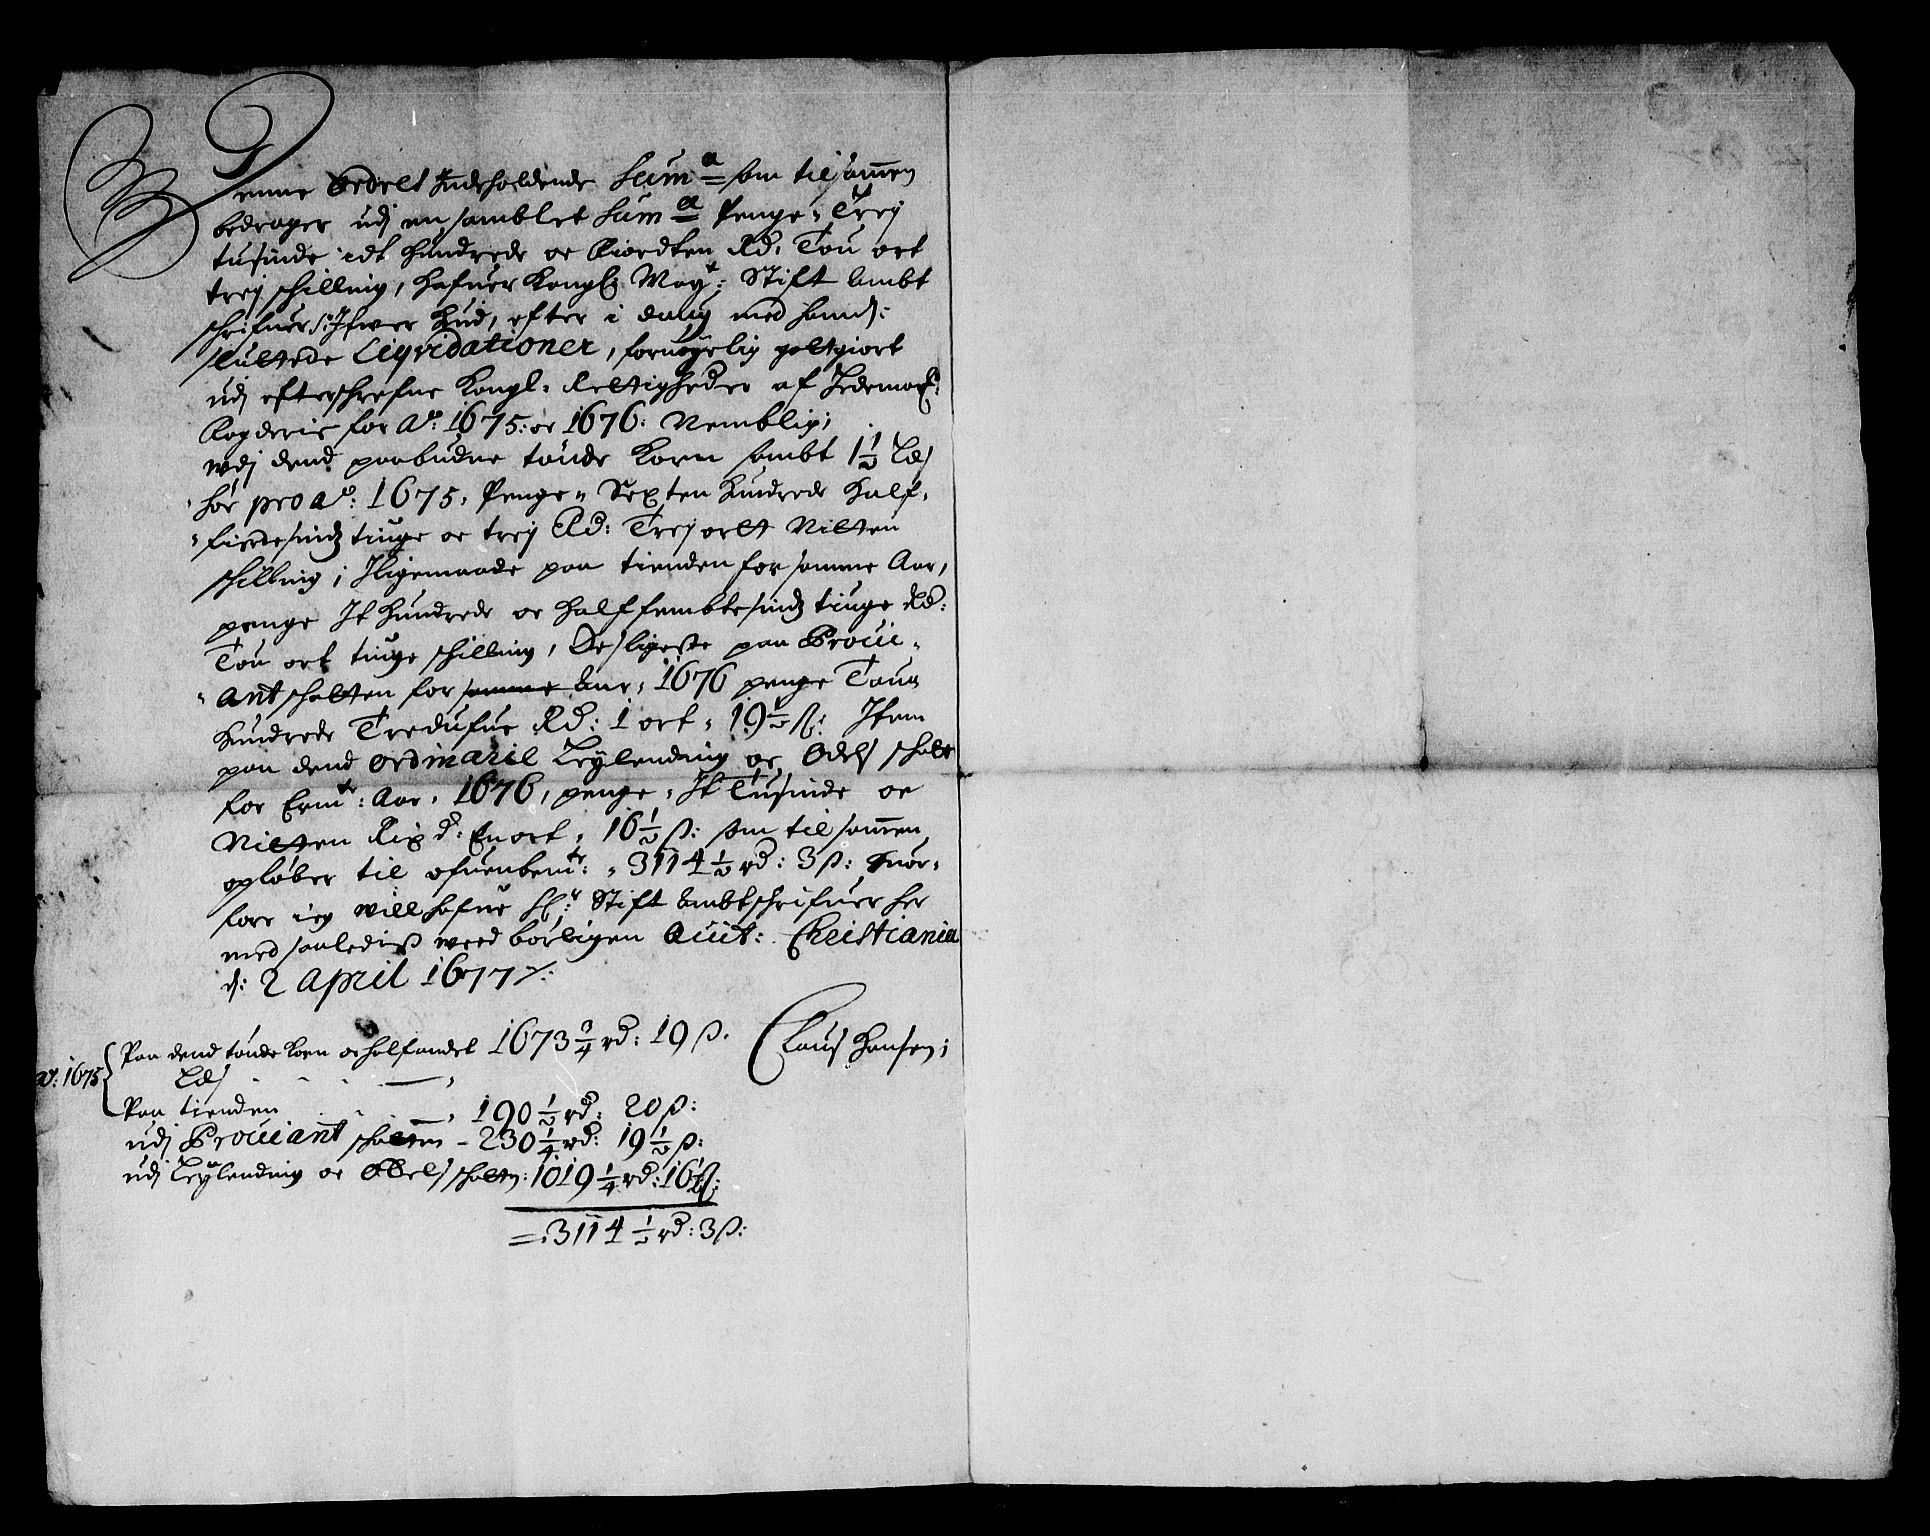 Denne Sedels Indeholdende Sum̄a som tilsam̄en
bedrager udj en samblet Sum̄a Penge, Trej
tusinde idt Hundrede oc Fiordten Rd: Tou ort
trej schilling, Hafuer Kongl: May:t Stift Ambt
schrifuer Sr: Ifwer Hud, efter i daug med hannd:
sluttede Liqvidationer, fornøyelig goltgiort
udj efterschrefne Kongl: Rettigheder af Hedemark:
Fogderie for Ao: 1675: oc 1676: Nemblig;
udj dend paabudne tønde Korn sambt 1½ Læs
høe pro Ao: 1675, Penge, Sexten Hundrede Half-
fierdesindz tiuge oc trej Rd: Trej ortt Nitten
schilling; Iligemaade paa tienden for samme Aar,
penge It Hundrede oc Half fembtesindz tiuge Rd:
Tou ort tiuge schilling, Desligeste paa Proui-
antschatten for samme Aar, 1676 penge Toua
Hundrede Tredufue Rd: 1 ort, 19½ ß: Item
paa dend ordinarie Leylending oc Odels schatt
for Erm:te: Aar, 1676, penge, It Tusinde oc
Nitten Rix d: En ort, 16½ ß: som til sam̄en
opløber til ofuenbem:te: 3114½ rd: 3 ß: Huor-
fore ieg will hafue H:r Stift Ambtschrifuer her
med saaledis weed børligen Quit: Christiania
d: 2 April 1677
Claus Hansen;
Ao: 1675 Paa dend tønde Korn oc halfandet 1673¾ rd: 19 ß:
Læs
Paa tienden 190½ rd: 20 ß:
udj Prouiant schatten - 230¼ rd: 19½ ß:
udj Leylending oc Odels schatten: 1019¼ rd: 16½ ß:
= 3114½ rd: 3 ß: